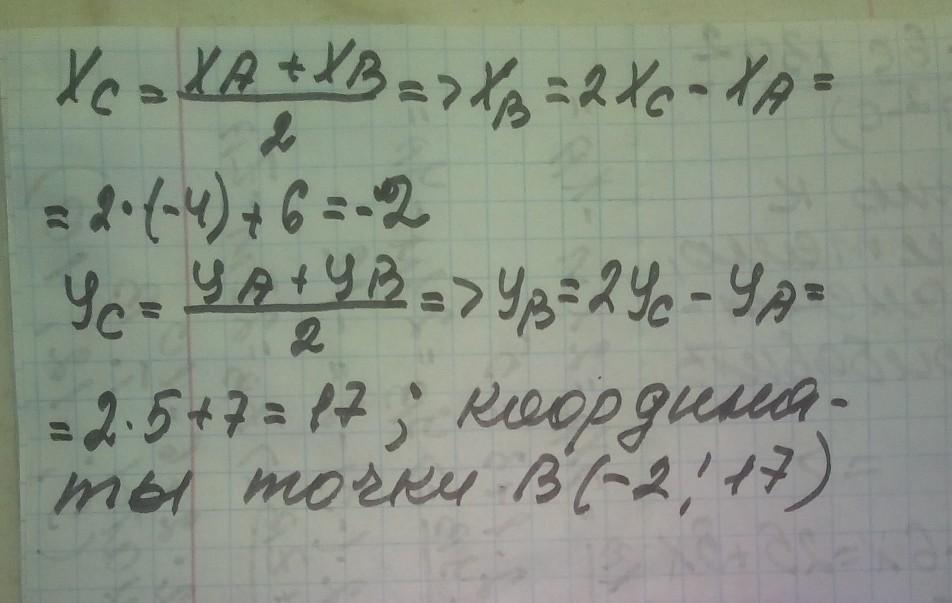 XC = XA + XB / 2 => XB = 2XC - XA =
= 2·(-4) + 6 = -2
УC = УA + УB / 2 => УB = 2УC - УA =
= 2·5 + 7 = 17; координа-
ты точки В(-2; 17)